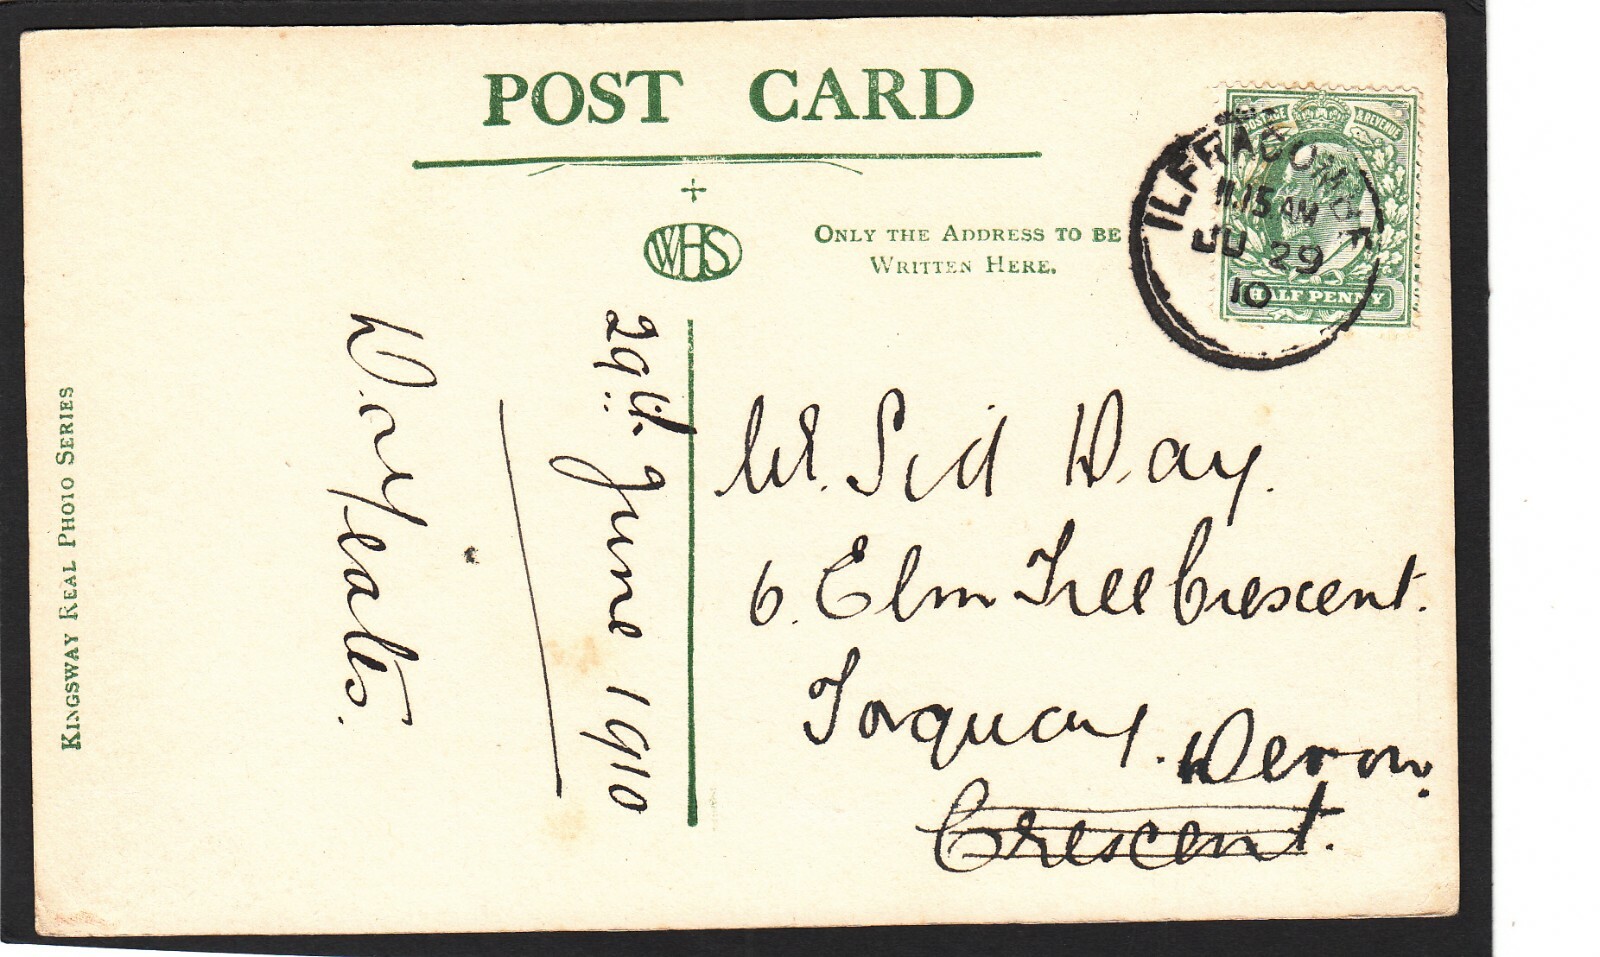 POST CARD
WHS
ONLY THE ADDRESS TO BE
WRITTEN HERE.
POSTAGE & REVENUE
HALF PENNY
ILFRACOMBE
11.15 AM
JU 29
10
KINGSWAY REAL PHOTO SERIES
29th June 1910
Mr. Sid Way.
6. Elm Tree Crescent.
Torquay. Devon.
Crescent.